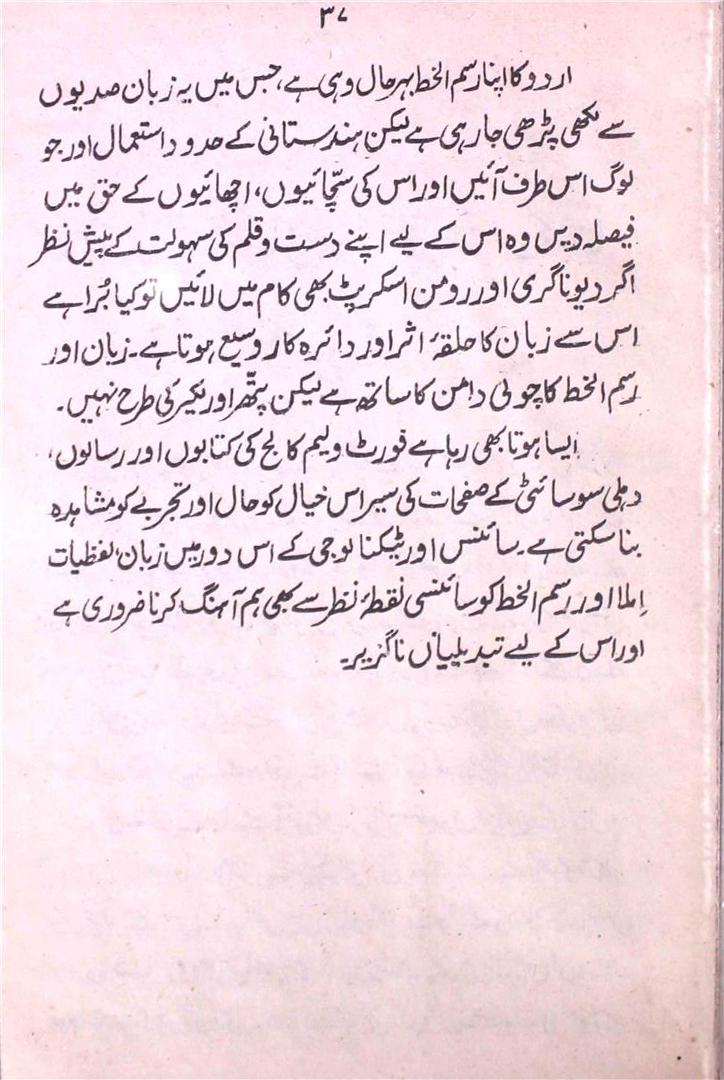 ۳۷
اردو کا اپنا رسم الخط بہر حال وہی ہے، جس میں یہ زبان صدیوں
سے لکھی پڑھی جا رہی ہے لیکن ہندستانی کے حدود استعمال اور جو
لوگ اس طرف آئیں اور اس کی سچّائیوں، اچھائیوں کے حق میں
فیصلہ دیں وہ اس کے لیے اپنے دست و قلم کی سہولت کے پیش نظر
اگر دیوناگری اور رومن اسکرپٹ بھی کام میں لائیں تو کیا بُرا ہے
اس سے زبان کا حلقۂ اثر اور دائرہ کار وسیع ہوتا ہے۔ زبان اور
رسم الخط کا چولی دامن کا ساتھ ہے لیکن پتّھر اور لکیر کی طرح نہیں۔
ایسا ہوتا بھی رہا ہے فورٹ ولیم کالج کی کتابوں اور رسالوں،
دہلی سوسائٹی کے صفحات کی سیر اس خیال کو حال اور تجربے کو مشاہدہ
بنا سکتی ہے۔ سائنس اور ٹیکنالوجی کے اس دور میں زبان، لفظیات
اِملا اور رسم الخط کو سائنسی نقطۂ نظر سے بھی ہم آہنگ کرنا ضروری ہے
اور اس کے لیے تبدیلیاں ناگزیر۔